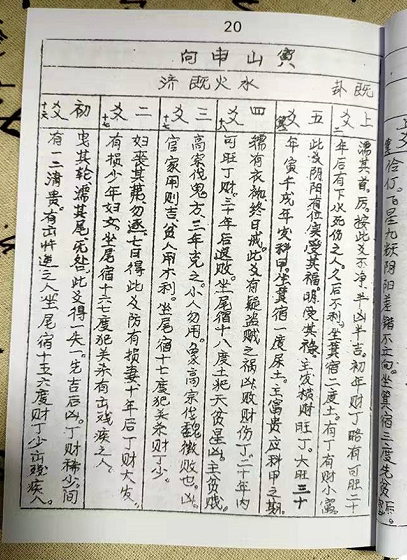 20
寅山申向
既卦
水火既济
上爻
濡其首。厉。按此爻不净半凶半吉。初年财丁略有可胜二十
年后有下水死伤之人。久后不利。坐箕宿二度土。有丁有财小富。
五爻
此爻阴阳有位。实受其福。明受其禄。主发横财旺丁。大旺三十
年寅午戌年发科甲。坐箕宿一度尿土。主富贵应科甲之期
四爻
繻有衣袽终日戒。此爻有疑盗贼之祸凶。败财伤丁。二十年内
可旺丁财三十年后退败。坐尾宿十八度土犯天贫星凶。主贫贱。
三爻
高宗伐鬼方。三年克之。小人勿用。象高宗伐魏徵败也。凶。
官家用则吉贫人用不利。坐尾宿十七度犯关杀财丁少。
二爻
妇丧其茀。勿逐。七日得此爻防有损妻十年后丁财大发。
有损少年妇女。坐尾宿十六七度犯关杀有出残疾之人。
初爻
曳其轮濡其尾无咎。此爻得一失一。先吉后凶。丁财稀少。间
有一二清贵。有出忤逆之人坐尾宿十五六度财丁少出残疾人。